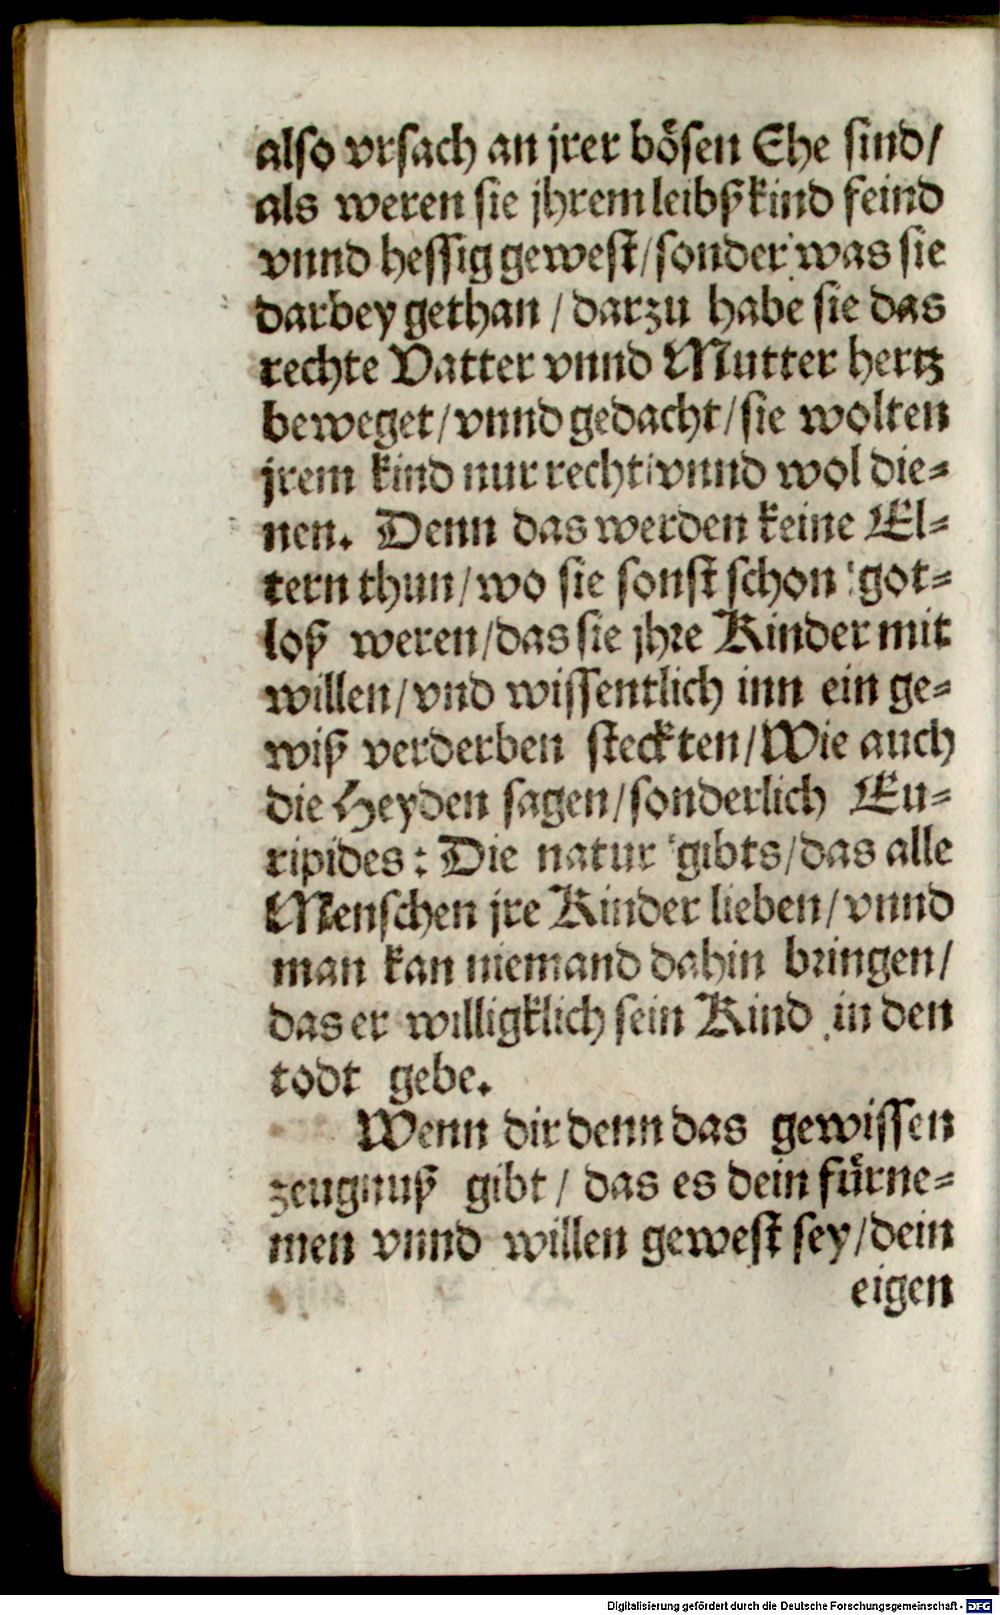 also vrsach an jrer bösen Ehe sind/
als weren sie jhrem leibßkind feind
vnnd hessig gewest/sonder was sie
darbey gethan / darzu habe sie das
rechte Vatter vnnd Mutter hertz
beweget/vnnd gedacht/sie wolten
jrem kind nur recht vnnd wol die=
nen. Denn das werden keine El=
tern thun/wo sie sonst schon got=
loß weren/das sie jhre Kinder mit
willen/vnd wissentlich inn ein ge=
wiß verderben steckten/Wie auch
die Heyden sagen/sonderlich Eu=
ripides: Die natur gibts/das alle
Menschen jre Kinder lieben/vnnd
man kan niemand dahin bringen/
das er willigklich sein Kind in den
todt gebe.
Wenn dir denn das gewissen
zeugnuß gibt / das es dein fürne=
men vnnd willen gewest sey/dein
eigen
Digitalisierung gefördert durch die Deutsche Forschungsgemeinschaft - DFG